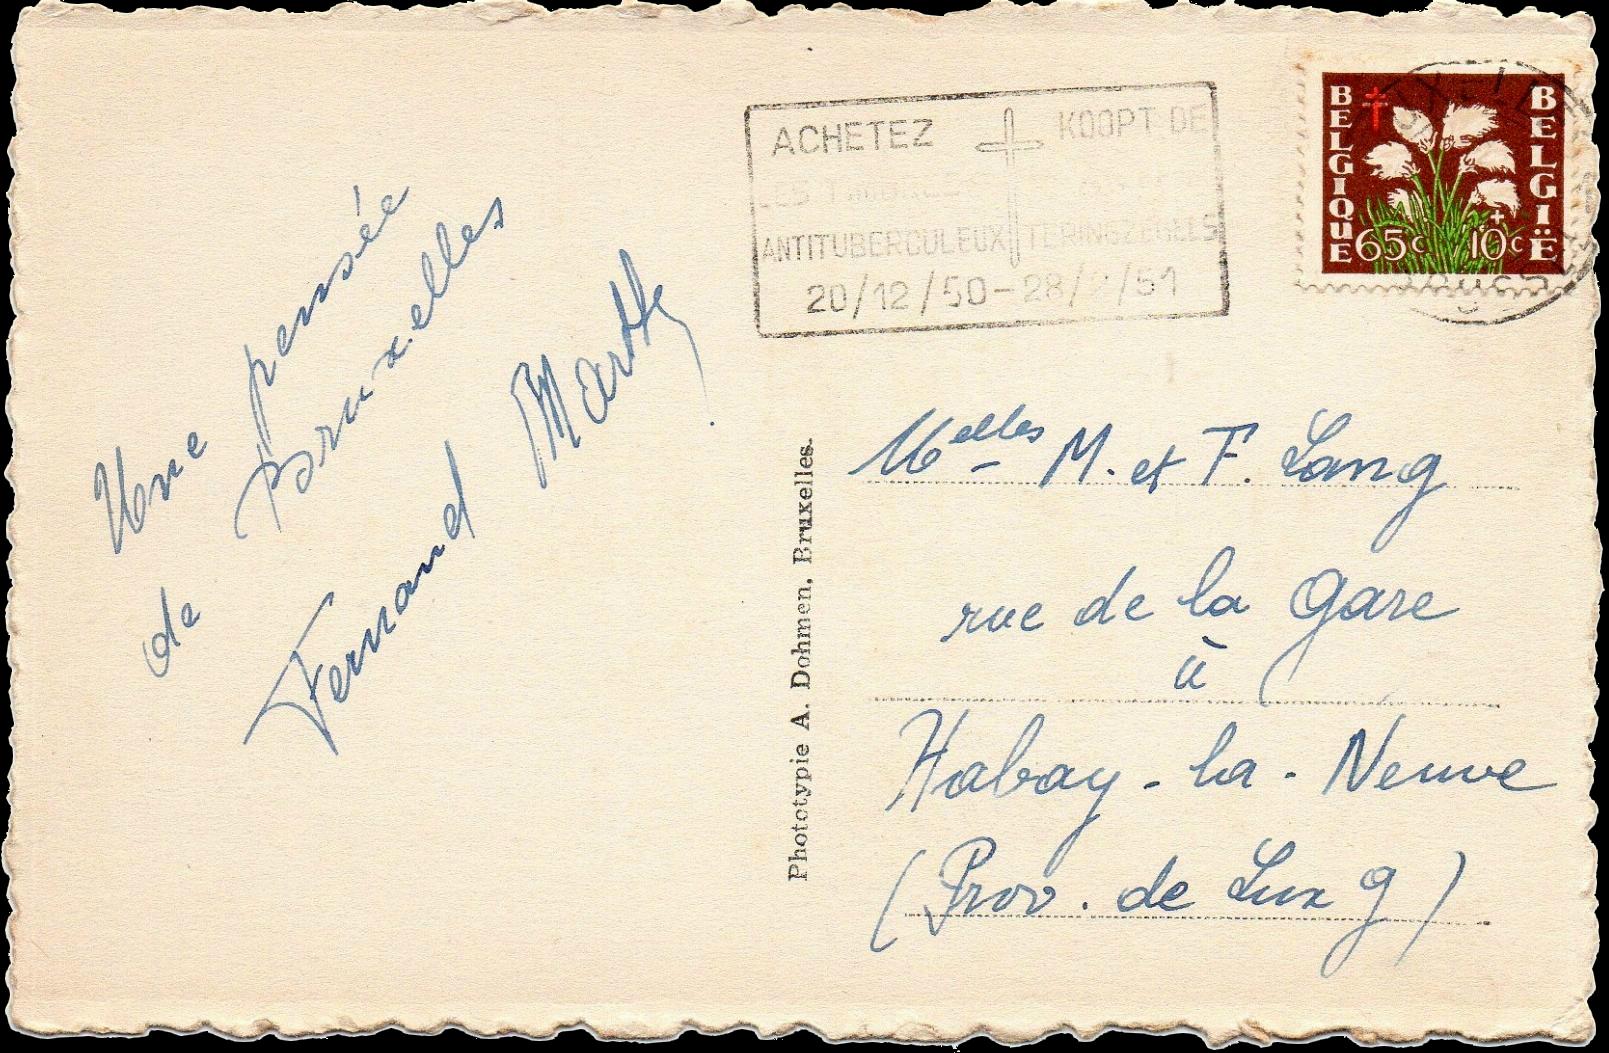 Une pensée
de Bruxelles
Fernand Marthe
Phototypie A. Dohmen, Bruxelles.
ACHETEZ KOOPT DE
LES TIMBRES
ANTITUBERCULEUX TERINGZEGELS
20/12/50-28/2/51
BELGIQUE BELGIË
65c + 10c
Melles M. et F. Lang
rue de la Gare
à
Habay-la-Neuve
(Prov. de Lux g)